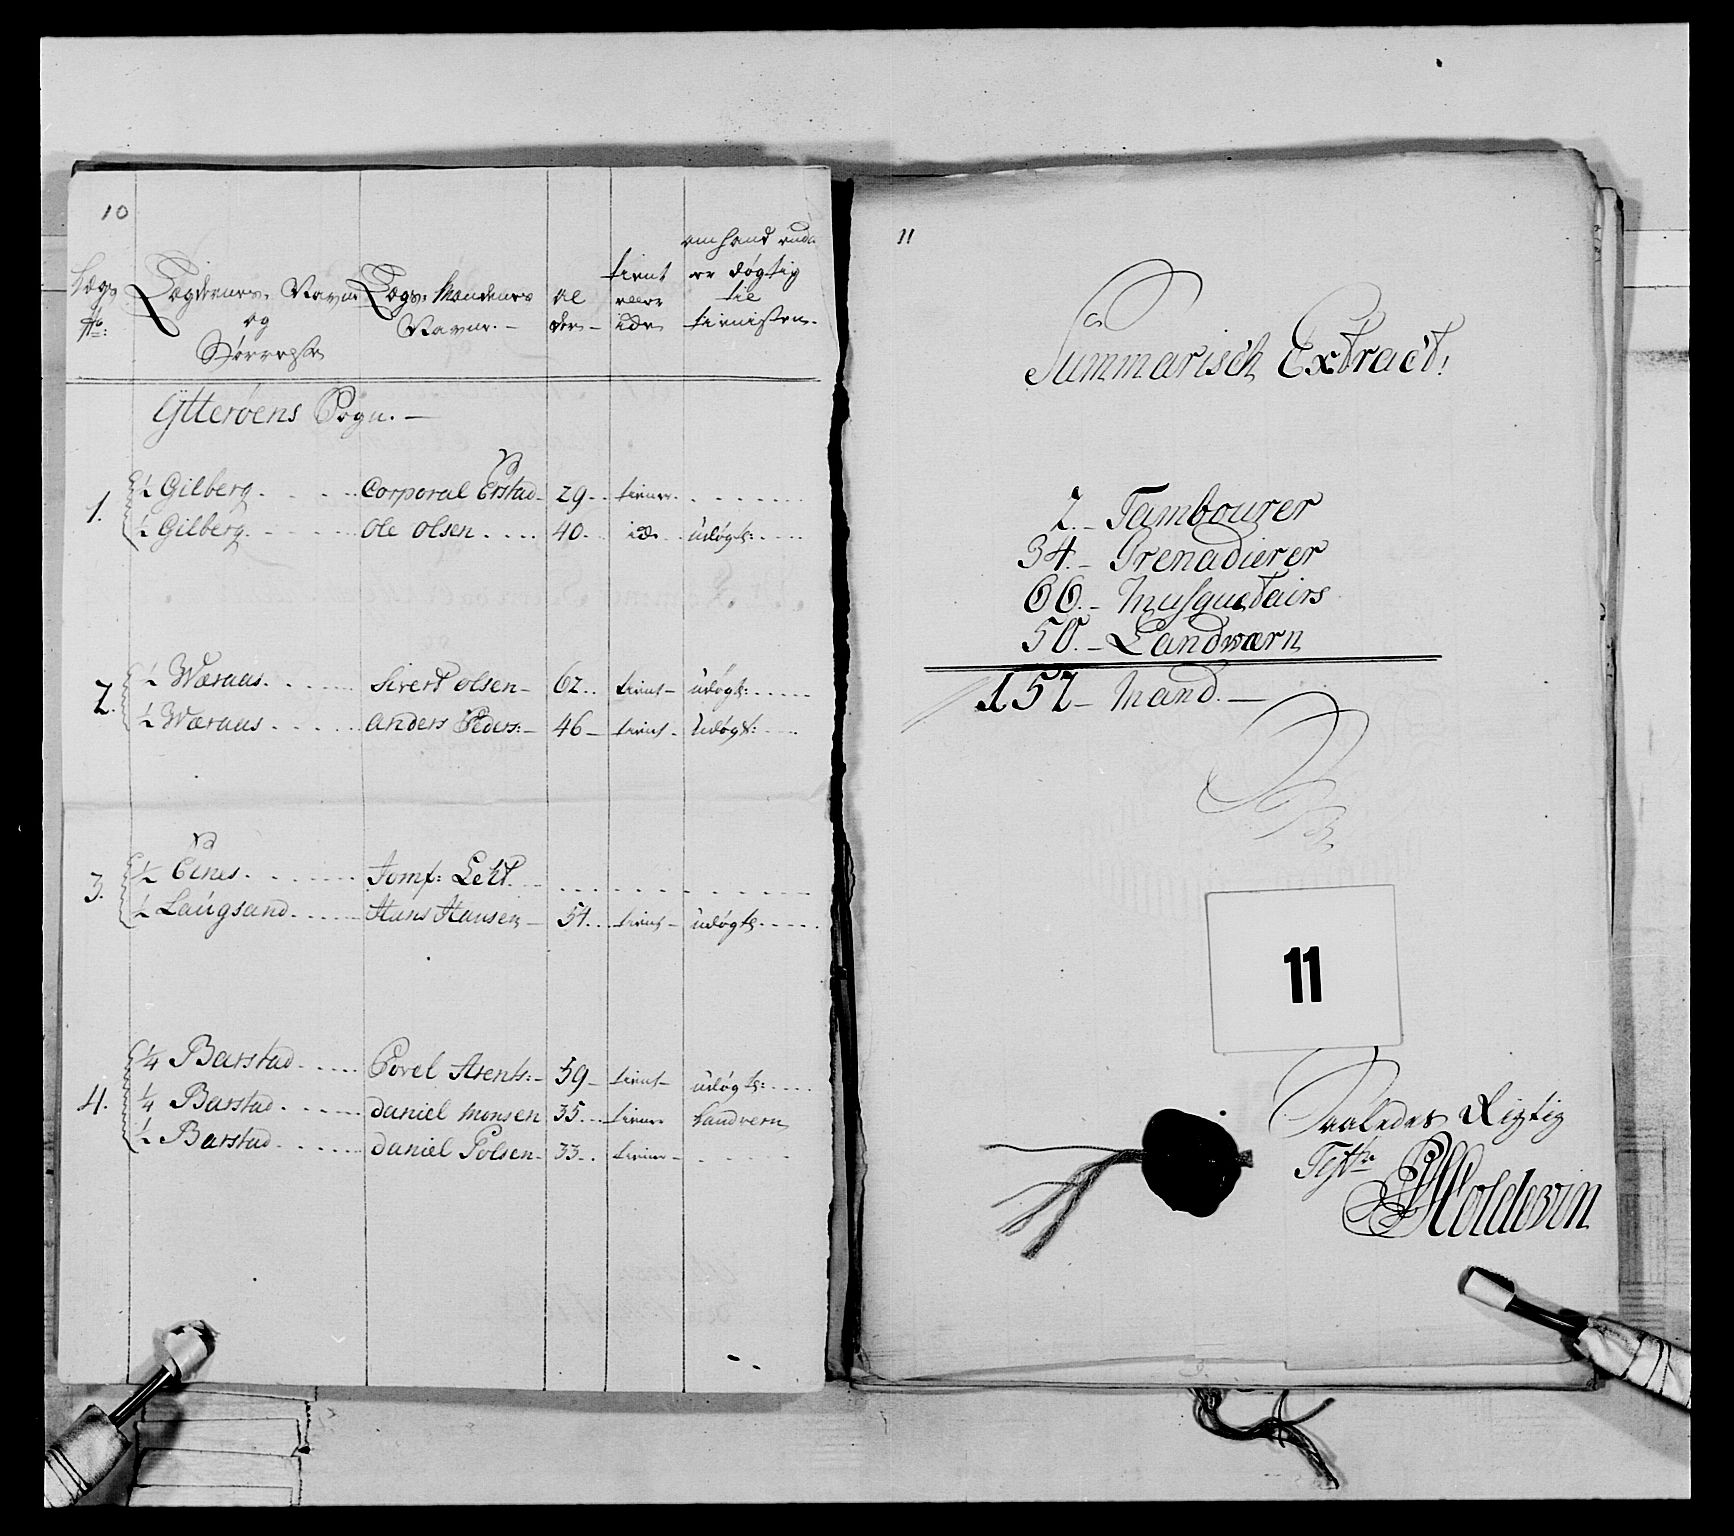 10
Lægs No:
Lægdernes Navne og Størrelse
Lægs: Mandenes Navne. -
al der -
tient eller ide
om hand endu er døgtig til tienisten.
Ytterøens Sogn. -
1. ½ Gilberg. Corporal Erstad - 29. tiener.
½ Gilberg. Ole Olsen 40. udøgt:
2. ½ Wæraas. Sivert Olsen - 62. tient - udøgt:
½ Wæraas Anders Peders: - 46 - tient - Udøgt:
3. ½ Eines. Jomf:
½ Laugsand. Hans Hansen - 54. tient - udøgt:
4. ¼ Barstad Povel Arents: - 59 - tient - udøgt:
¼ Barstad Daniel Monsen 35. tiener Landvern
½ Barstad Daniel Polsen - 33. tiener -
11
Summarisch Extract:
2. - Tambourer
34. - Grenadierer
66. - Musquetairs
50. - Landværn
152 - Mand. -
11
Saaledes Rigtig
Test:
Coldevin